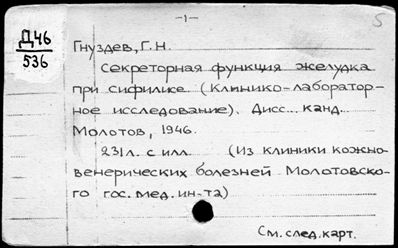 -1-
5
Д46
536
Гнуздев, Г.Н.
Секреторная функция желудка
при сифилисе (Клинико-лаборатор-
ное исследование). Дисс... канд...
Молотов, 1946.
231л. с илл. (Из клиники кожно-
венерических болезней Молотовско-
го гос. мед. ин-та)
См. след. карт.